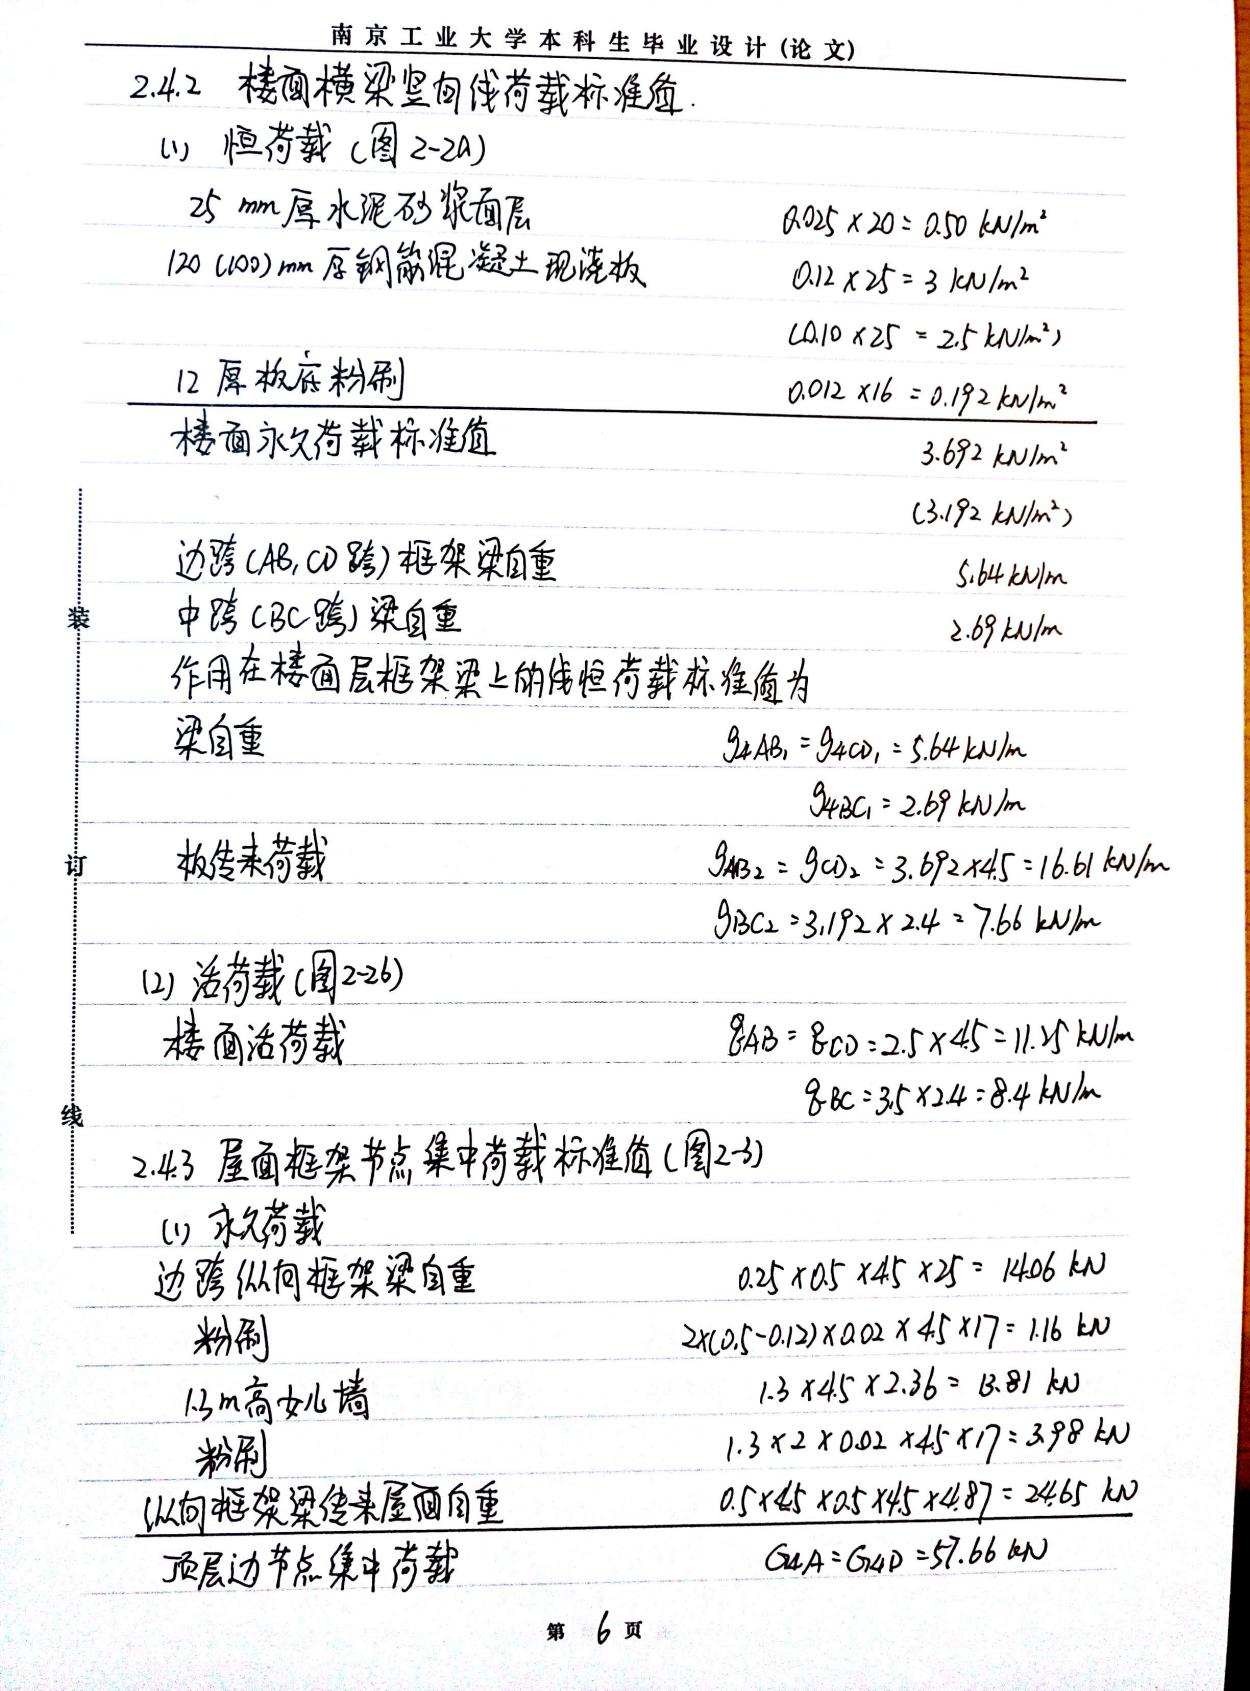 南京工业大学本科生毕业设计(论文)
2.4.2 楼面横梁竖向线荷载标准值.
(1) 恒荷载 (图2-2a)
25 mm厚水泥砂浆面层 0.025×20=0.50 kN/m²
120(100)mm厚钢筋混凝土现浇板 0.12×25=3 kN/m²
(0.10×25=2.5 kN/m²)
12厚板底粉刷 0.012×16=0.192 kN/m²
楼面永久荷载标准值 3.692 kN/m²
(3.192 kN/m²)
边跨(AB,CD跨)框架梁自重 5.64 kN/m
中跨(BC跨)梁自重 2.69 kN/m
作用在楼面层框架梁上的线恒荷载标准值为
梁自重 g4AB₁=g4CD₁=5.64 kN/m
g4BC₁=2.69 kN/m
板传来荷载 gAB₂=gCD₂=3.692×4.5=16.61 kN/m
gBC₂=3.192×2.4=7.66 kN/m
(2) 活荷载(图2-2b)
楼面活荷载 qAB=qCD=2.5×4.5=11.25 kN/m
qBC=3.5×2.4=8.4 kN/m
2.4.3 屋面框架节点集中荷载标准值(图2-3)
(1) 永久荷载
边跨纵向框架梁自重 0.25×0.5×4.5×25=14.06 kN
粉刷 2×(0.5-0.12)×0.02×4.5×17=1.16 kN
1.3m高女儿墙 1.3×4.5×2.36=13.81 kN
粉刷 1.3×2×0.02×4.5×17=3.98 kN
纵向框架梁传来屋面自重 0.5×4.5×0.5×4.5×4.87=24.65 kN
顶层边节点集中荷载 G4A=G4D=57.66 kN
装
订
线
第 6 页